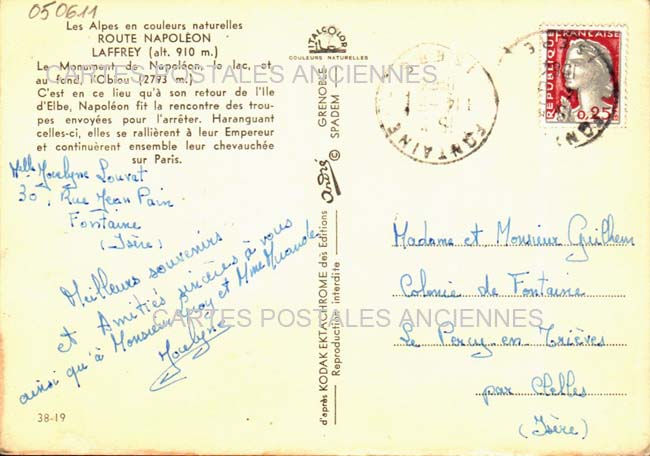 050611
Les Alpes en couleurs naturelles
ROUTE NAPOLÉON
LAFFREY (alt. 910 m.)
Le Monument de Napoléon, le lac, et
au fond, l'Obiou (2793 m.)
C'est en ce lieu qu'à son retour de l'Ile
d'Elbe, Napoléon fit la rencontre des trou-
pes envoyées pour l'arrêter. Haranguant
celles-ci, elles se rallièrent à leur Empereur
et continuèrent ensemble leur chevauchée
sur Paris.
CARTES POSTALES ANCIENNES
Melle Jocelyne Louvat
30, Rue Jean Pain
Fontaine
(Isère)
Meilleurs souvenirs
et Amitiés sincères à vous
ainsi qu'à Monsieur et Mme
Jocelyne
38-19
ITALCOLOR
COULEURS NATURELLES
GRENOBLE
SPADEM
©
André
d'après KODAK EKTACHROME des Editions
Reproduction interdite
FONTAINE
ISERE
REPUBLIQUE FRANÇAISE
0,25
Madame et Monsieur Guilhem
Colonie de Fontaine
CARTES POSTALES ANCIENNES
Le Percy en Trièves
par Clelles
(Isère)